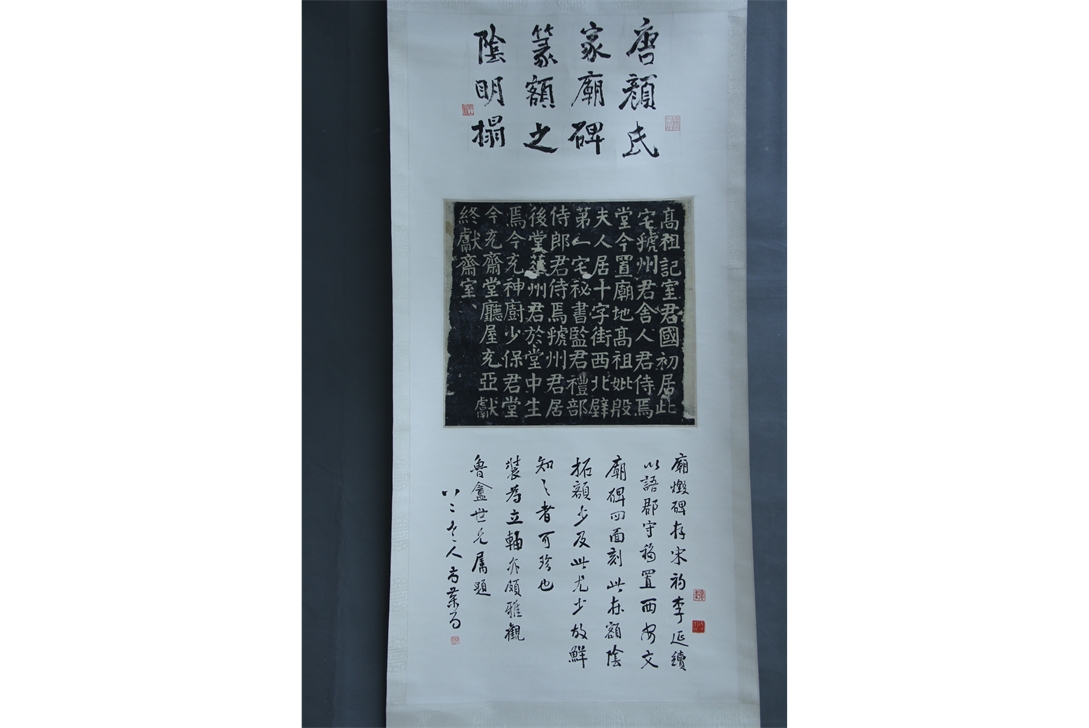 唐顏氏
家廟碑
篆額之
陰明搨
高祖記室君國初居此
宅虢州君舍人君侍焉
堂今置廟地高祖妣殷
夫人居十字街西北壁
第一宅祕書監君禮部
侍郎君侍焉虢州君居
後堂華州君於堂中生
焉今充神廚少保君堂
今充齋堂廳屋充亞獻
終獻齋室
廟燬碑存宋初李延
以語郡守移置西安文
廟碑四面刻此存額陰
拓額少及此尤少故鮮
知之者可珍也
裝為立軸亦頗雅觀
魯盦世兄屬題
八二老人